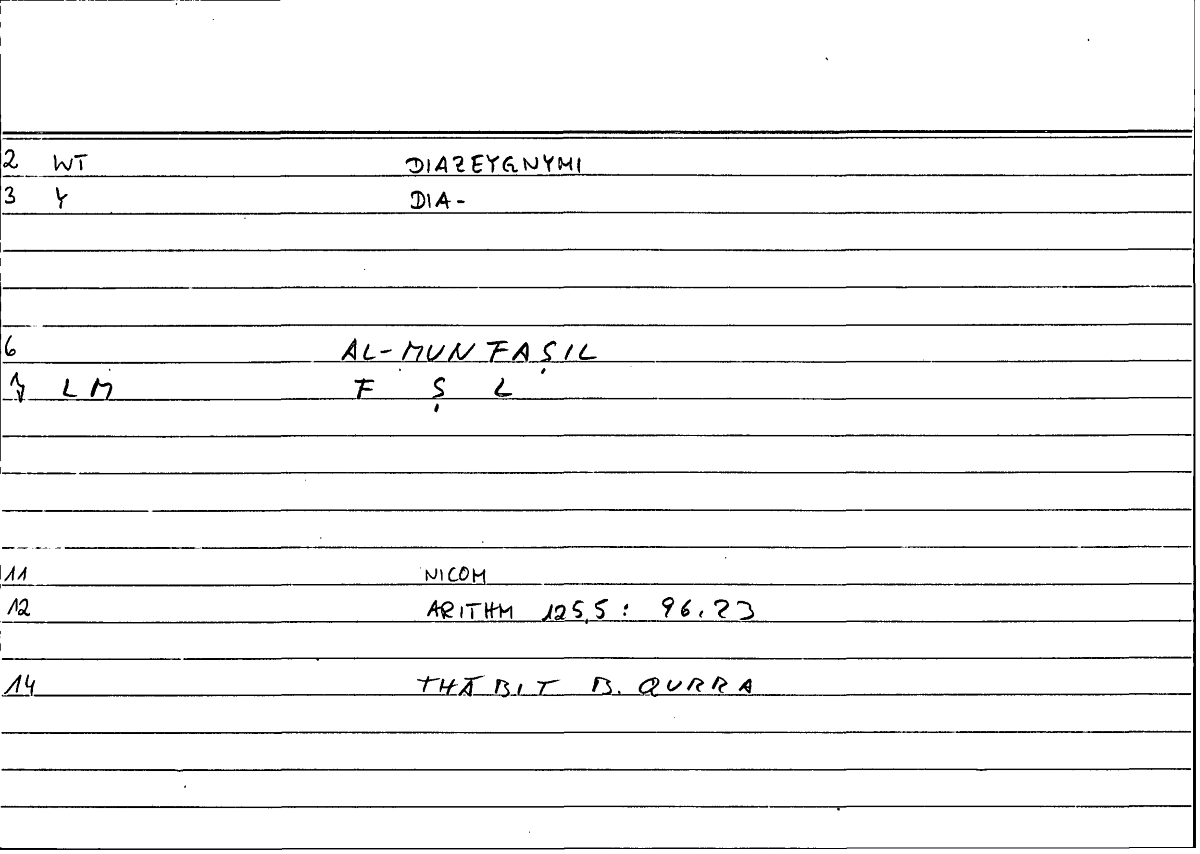 2 WT DIAZEYGNYMI
3 Y DIA-
6 AL-MUNFAṢIL
7 LM F Ṣ L
11 NICOM
12 ARITHM 125,5: 96.23
14 THĀBIT B. QURRA